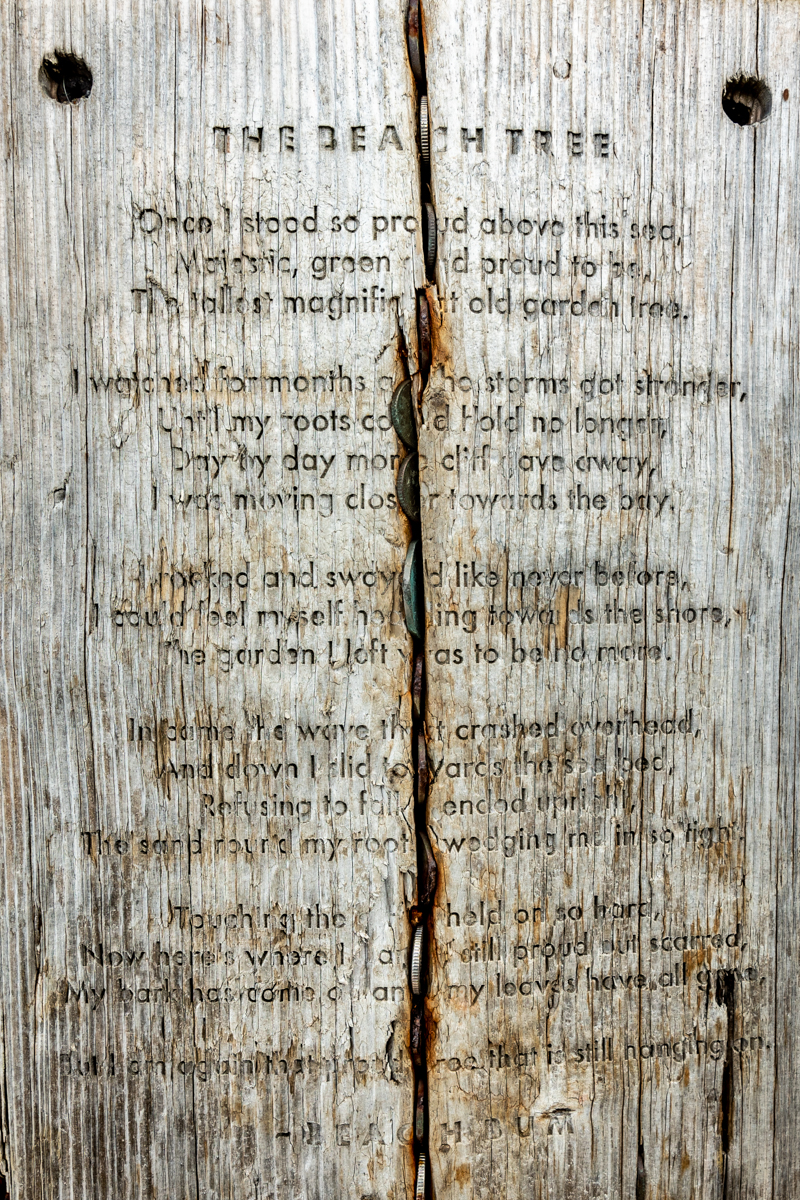 THE BEACH TREE
Once I stood so proud above this sea,
Majestic, green and proud to be,
The tallest magnificent old garden tree.
I watched for months as the storms got stronger,
Until my roots could hold no longer,
Day by day more cliff gave away,
I was moving closer towards the bay.
I rocked and swayed like never before,
I could feel myself heading towards the shore,
The garden I left was to be no more.
In came the wave that crashed overhead,
And down I slid towards the sea bed,
Refusing to fall I ended upright,
The sand round my roots wedging me in so tight.
Touching the held on so hard,
Now here's where I still proud but scarred,
My bark has come off and my leaves have all gone,
But I am again that proud tree that is still hanging on.
- BEACH BUM